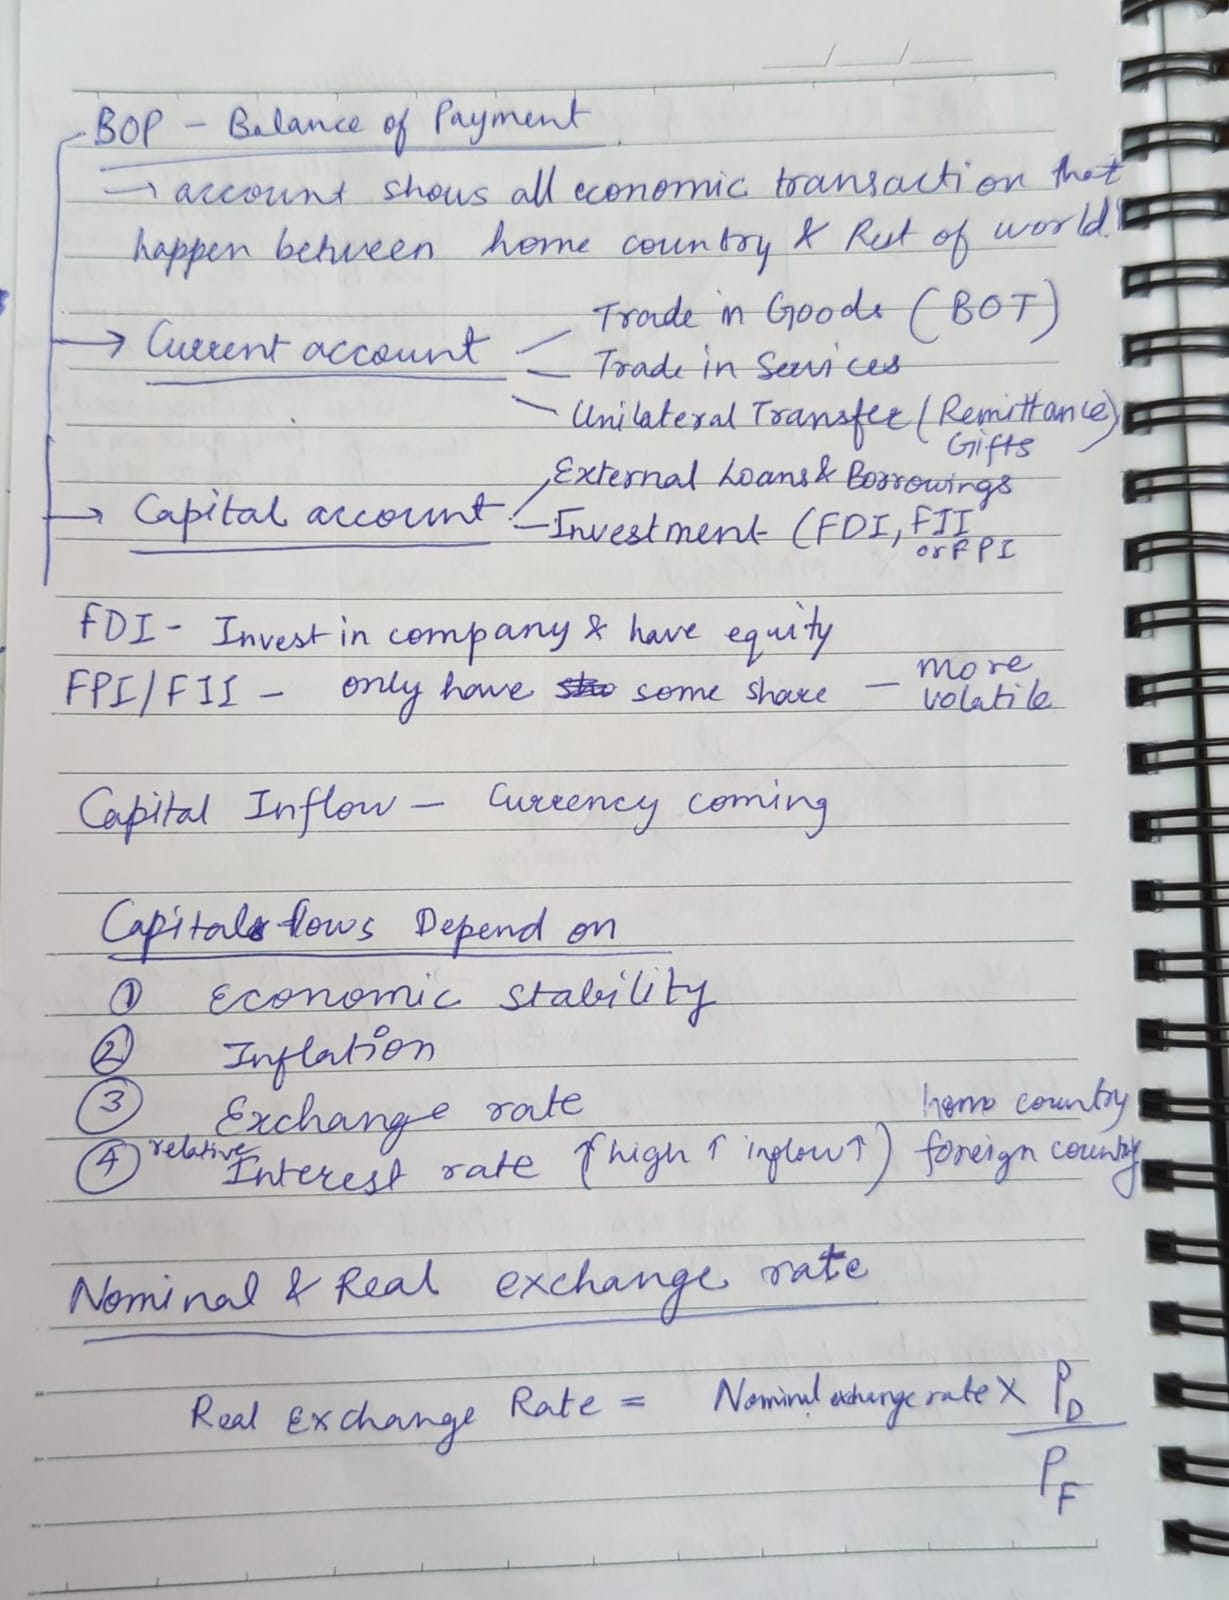 BOP - Balance of Payment
→ account shows all economic transaction that
happen between home country & Rest of world.
→ Current account
Trade in Goods (BOT)
Trade in Services
Unilateral Transfer (Remittance)
Gifts
→ Capital account
External Loans & Borrowings
Investment (FDI, FII
or FPI
FDI - Invest in company & have equity
FPI/FII - only have some share - more
volatile
Capital Inflow - Currency coming
Capital flows Depend on
① Economic stability
② Inflation
③ Exchange rate
④ relative Interest rate (high ↑ inflow ↑) home country
foreign country
Nominal & Real exchange rate
Real Exchange Rate = Nominal exchange rate × P_D
P_F